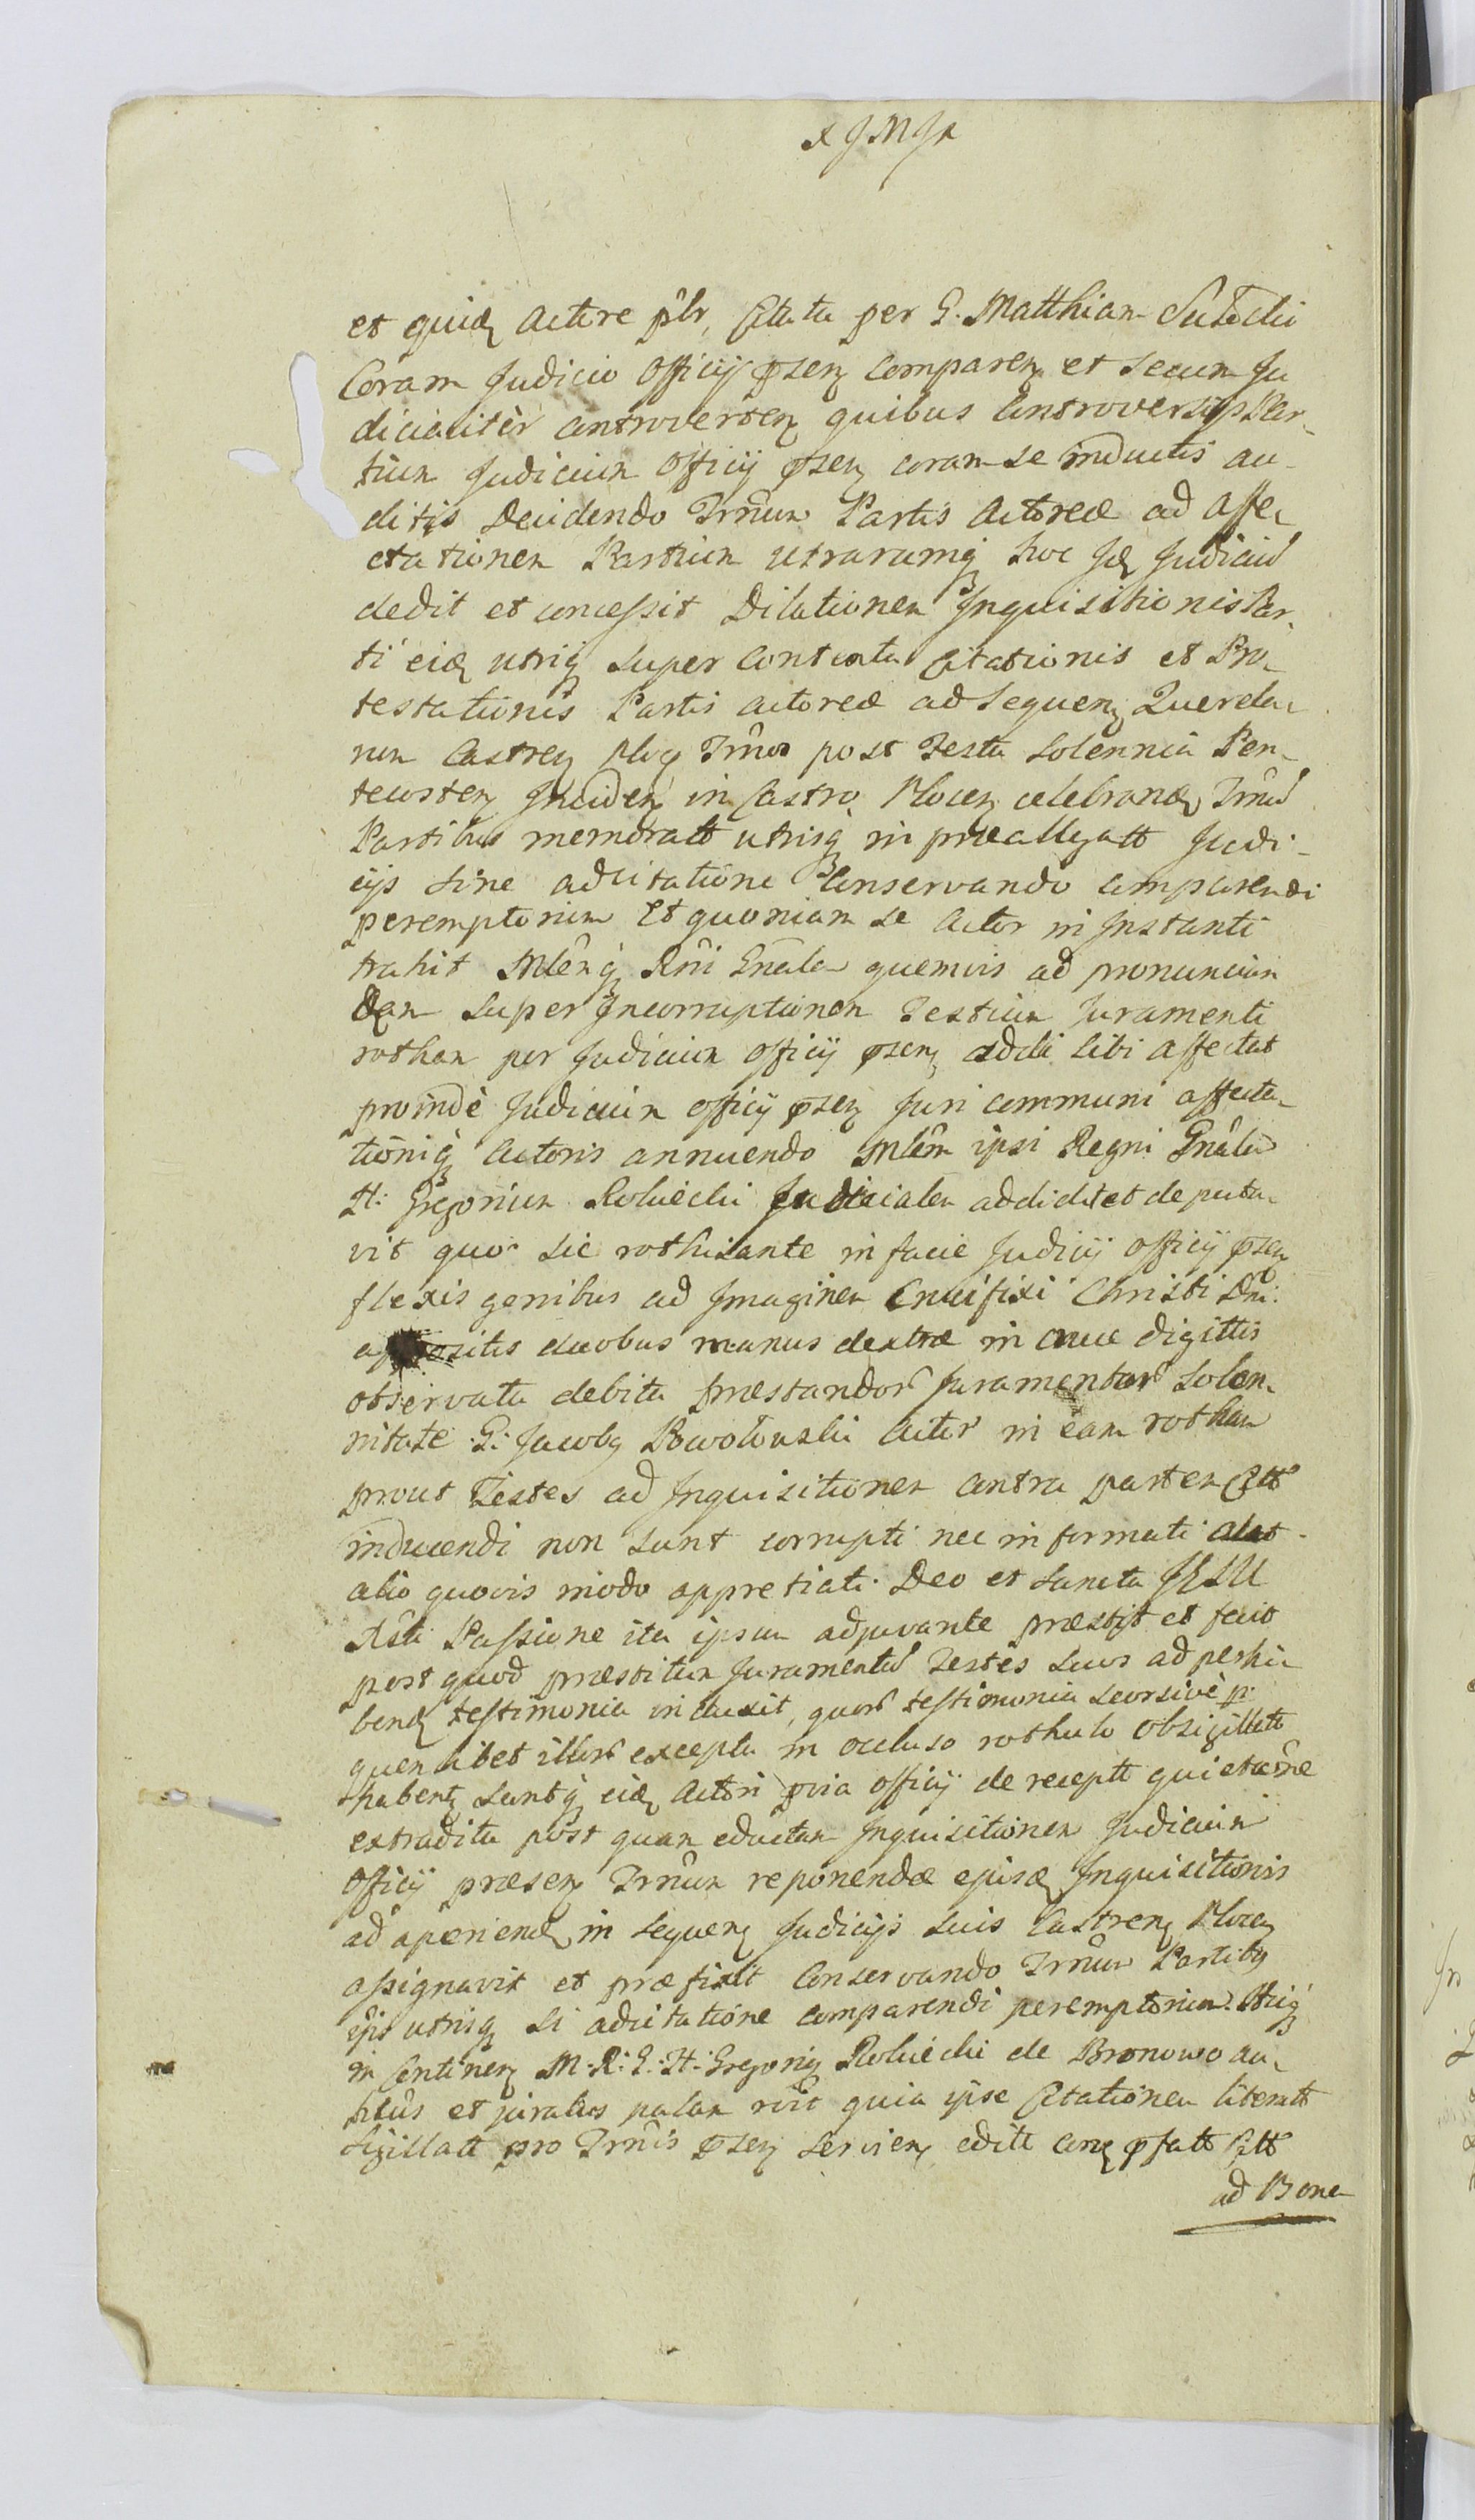 X J M J A
et quidę Actore plr, Citata per G. Matthian Sutecki
Coram Judicio Officij psenę Comparenę et Secum Ju
dicialitèr Controvertenę quibus Controversijs Par-
tium Judicium Officij psenę coram se inductis au-
ditis Decidendo Trmum Partis Actoreæ ad Affe-
ctationem Partium utrarumq hoc Jdę Judiciũ
dedit et concessit Dilationem Inquisitionis Par-
ti eidę utriq super Contenta Citationis et Pro-
testationis Partis actoreæ ad Sequenę Querela-
rum Castrenę Plocę Trmos post Festa Solennia Pen-
tecosten Incidenę in Castro Plocenę celebrandę Trmũ
Partibus memoratt utrisq in præallegatt Judi-
cijs sine adcitatione Conservando comparendi
peremptorium Et quoniam se Actor in Instanti
trahit Mlemq Rni Gnalem quemvis ad pronuncian
dam super Incorruptionem Testium Juramenti
rotham per Judicium Officij psenę addi sibi affectat
proindè Judicium officij psenę Juri communi affecta-
tioniq Actoris annuendo Mlem ipsi Regni Gnalem
H: Gregorium Rokicki Judicialem addidit et deputa-
vit quo sic rothisante in facie Judicij Officij psenę
flexis genibus ad Imaginem Crucifixi Christi Dni
appositis duobus manus dextræ in cruce digittis
observata debita præstandor Juramentor Solen-
nitate G: Jacobg Actor in eam rotham
prout Testes ad Inquisitionem contra partem Citt
inducendi non sunt corrupti nec informati aut
alio quovis modo appretiati Deo et Sancta JESU
Xsti Passione ita ipsum adjuvante præstitit et fecit
post quod præstitum Juramentũ Testes suos ad perhi-
bendę testimonia induxit, quorũ testimonia seorsivè p:
quemlibet illorũ excepta in occluso rothulo Obsigillatt
habentę suntq eidę Actori pvia officij de receptt quietatione
extradita post quam eductam Inquisitionem Judicium
Officij præsenę Trmum reponendæ ejusdę Inquisitionis
ad aperiendę in Sequenę Judicijs suis Castrenę Plocenę
assignavit et præfixit Conservando Trmum Partibg
ijs utrisq si adcitatione comparendi peremptorium. Ibiq
in Continenę M: R: G: H: Gregorig Rokicki de Bronowo au-
ticus et juratus palam rvit quia ipse Citationem literatt
Sigillatt pro Trmis psenę servienę editt contę pfatt Citt
ad Bona